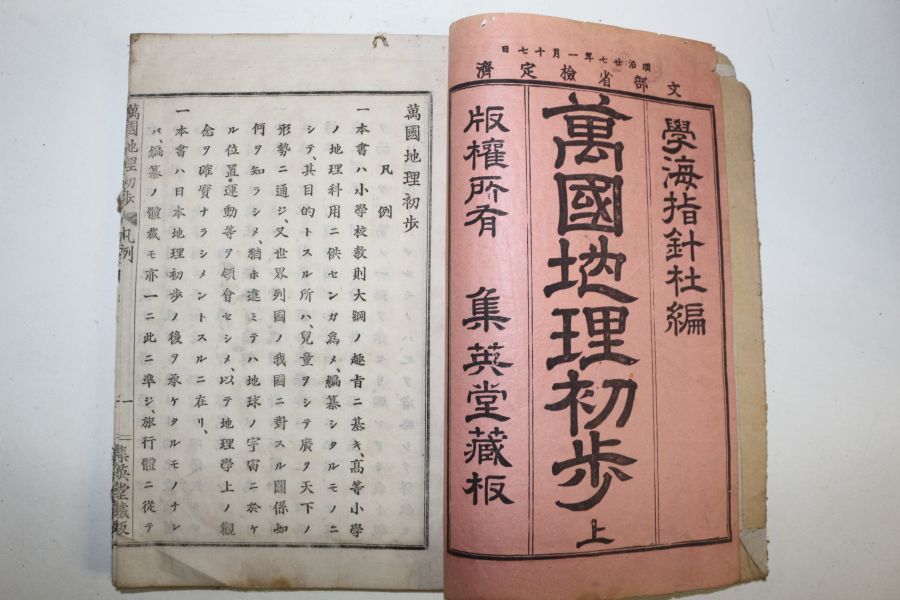 明治廿七年一月十七日
文部省檢定濟
學海指針社編
萬國地理初歩 上
版權所有 集英堂藏板
萬國地理初歩
凡例
一本書ハ小學校敎則大綱ノ趣旨ニ基キ、高等小學
ノ地理科用ニ供センガ爲メ、編纂シタルモノニ
シテ、其目的トスル所ハ、兒童ヲシテ廣ク天下ノ
形勢ニ通ジ、又世界列國ノ我國ニ對スル關係如
何ヲ知ラシメ、猶ホ進ミテハ地球ノ宇宙ニ於ケ
ル位置・運動等ヲ領會セシメ、以テ地理學上ノ觀
念ヲ確實ナラシメントスルニ在リ、
一本書ハ日本地理初歩ノ後ヲ承ケタルモノナレ
バ、編纂ノ體裁モ亦一ニ此ニ準ジ、旅行體ニ從テ
萬國地理初歩 凡例 一 集英堂藏版